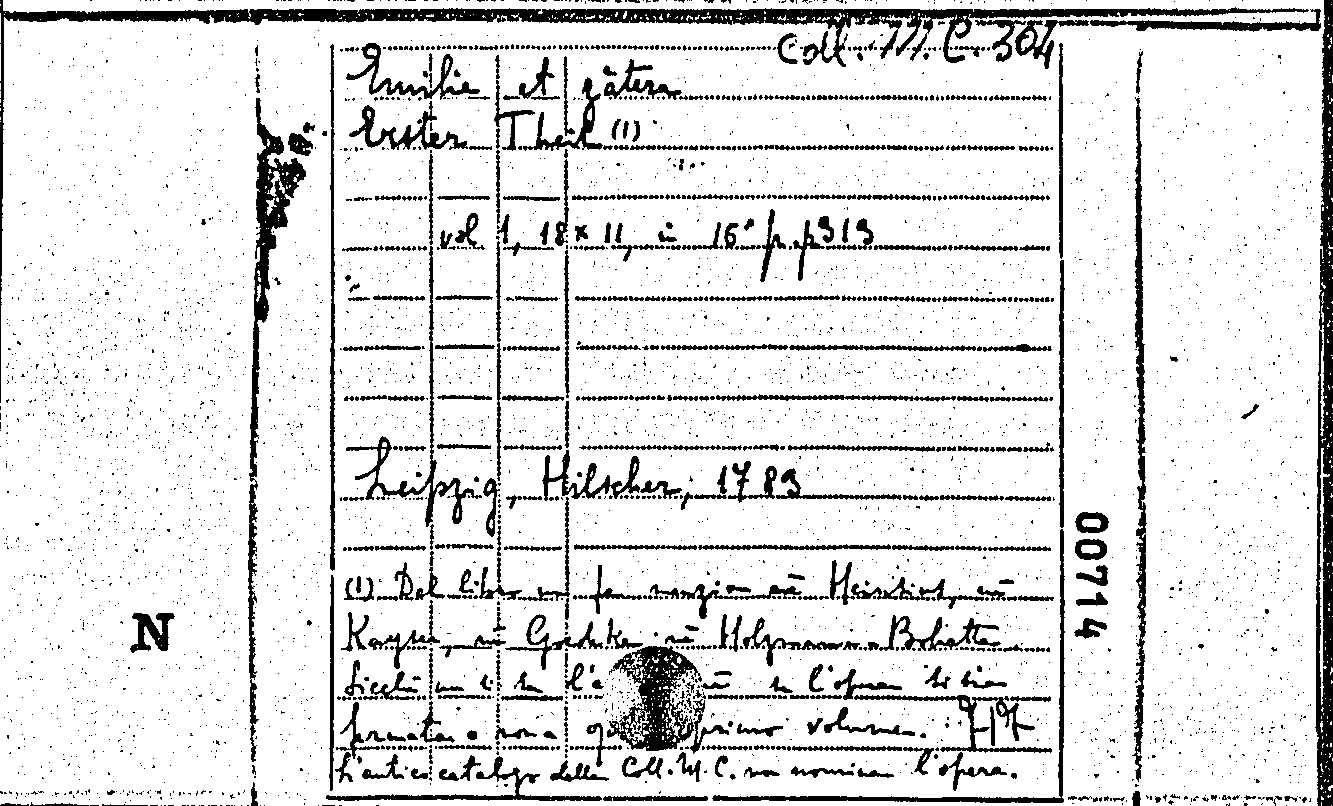 Coll. M. C. 304
Emilie et gâtera
Erster Theil (1)
vol 1, 18 x 11, in 16° p. p 313
Leipzig, Hilscher, 1783
(1) Del libro fa menzion Heinsius, nè
Kayser, nè Goedeke nè Holzmann Bohatta
Sicchè l'a se l'opera
fermata o non a primo volume.
L'antico catalogo della Coll. M. C. non nomina l'opera.
00714
N